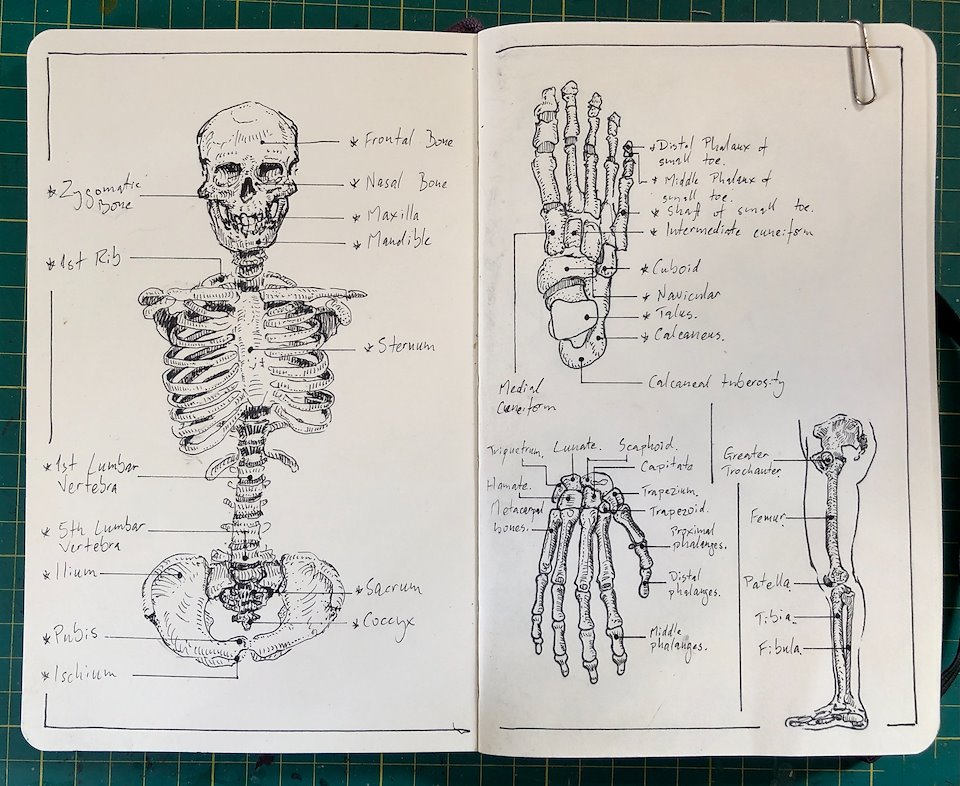 * Frontal Bone
* Nasal Bone
* Zygomatic
Bone
* Maxilla
* Mandible
* 1st Rib
* Sternum
* 1st Lumbar
Vertebra
* 5th Lumbar
Vertebra
* Ilium
* Sacrum
* Coccyx
* Pubis
* Ischium
* Distal Phalanx of
small toe.
* Middle Phalanx of
small toe.
* Shaft of small toe.
* Intermediate cuneiform
* Cuboid
* Navicular
* Talus.
* Calcaneus.
Calcaneal tuberosity
Medial
Cuneiform
Triquetrum. Lunate. Scaphoid.
Capitate
Hamate.
Trapezium.
Metacarpal
bones.
Trapezoid.
Proximal
phalanges.
Distal
phalanges.
Middle
phalanges.
Greater
Trochanter
Femur
Patella
Tibia
Fibula